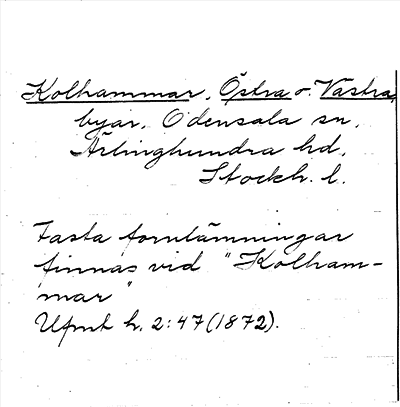 Kolhammar, Östra o. Västra,
byar, Odensala sn,
Ärlinghundra hd,
Stockh. l.
Fasta fornlämningar
finnas vid "Kolham-
mar"
Ufmt h. 2:47 (1872).